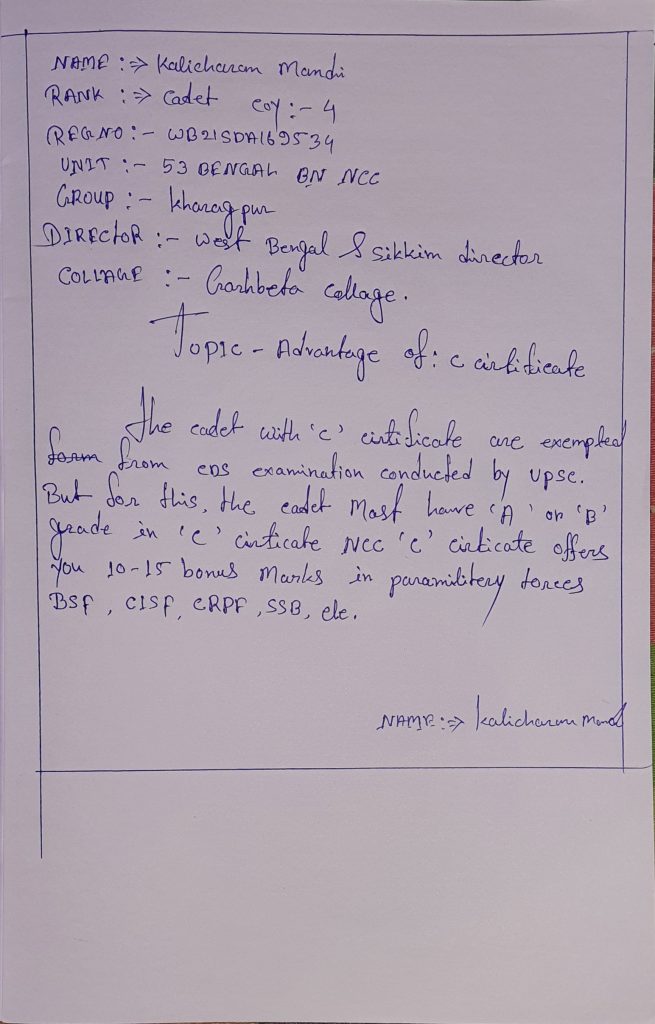 NAME :⇒ Kalicharan Mandi
RANK :⇒ Cadet coy :- 4
REG NO :- WB21SDA169534
UNIT :- 53 BENGAL BN NCC
GROUP :- kharagpur
DIRECTOR :- West Bengal & sikkim director
COLLAGE :- Garhbeta collage.
Topic - Advantage of : c cirtificate
The cadet with 'c' cirtificate are exempted
form from CDS examination conducted by upsc.
But for this, the cadet Most have 'A' or 'B'
grade in 'C' cirticate NCC 'C' cirticate offers
you 10-15 bonus marks in paramilitery forces
BSF, CISF, CRPF, SSB, etc.
NAME :⇒ kalicharan Mandi